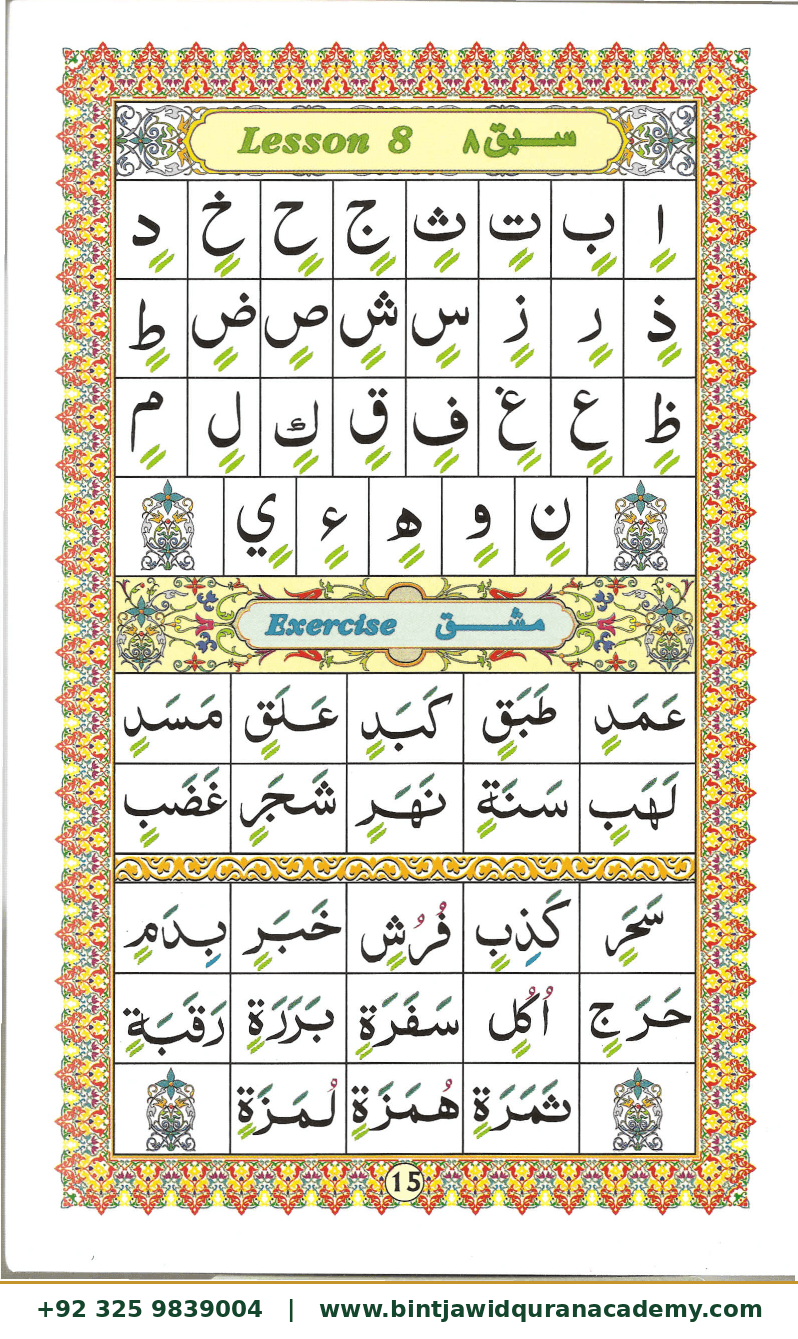 Lesson 8 سبق ٨
اٍ بٍ تٍ ثٍ جٍ حٍ خٍ دٍ
ذٍ رٍ زٍ سٍ شٍ صٍ ضٍ طٍ
ظٍ عٍ غٍ فٍ قٍ كٍ لٍ مٍ
نٍ وٍ هٍ ءٍ يٍ
Exercise مشق
عَمَدٍ طَبَقٍ كَبَدٍ عَلَقٍ مَسَدٍ
لَهَبٍ سَنَةٍ نَهَرٍ شَجَرٍ غَضَبٍ
سَحَرٍ كَذِبٍ فُرُشٍ خَبَرٍ بِدَمٍ
حَرَجٍ اُكُلٍ سَفَرَةٍ بَرَرَةٍ رَقَبَةٍ
ثَمَرَةٍ هُمَزَةٍ لُمَزَةٍ
15
+92 325 9839004 | www.bintjawidquranacademy.com